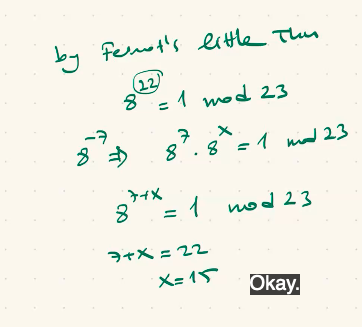 by Fermat's little Thm
8^22 = 1 mod 23
8^-7 ⇒ 8^7 . 8^x = 1 mod 23
8^7+x = 1 mod 23
7+x = 22
x=15
Okay.